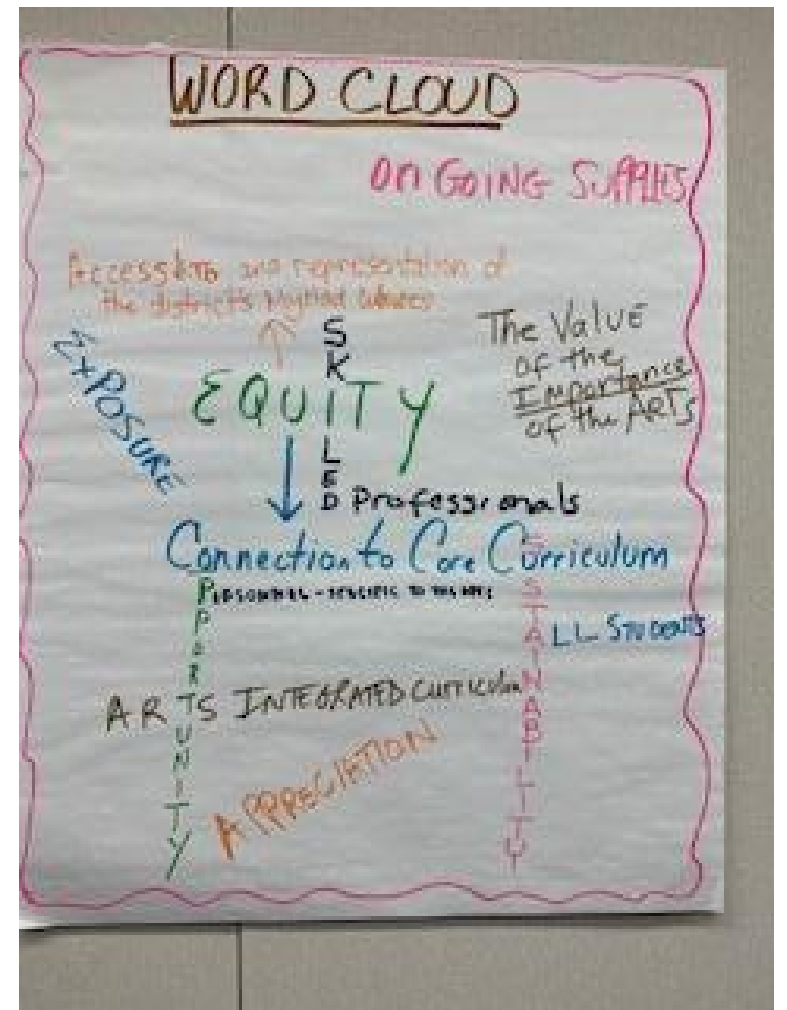 WORD CLOUD
ON GOING SUPPLIES
and representation of
the district's Myriad
EXPOSURE
SKILLED
EQUITY
The Value
of the
Importance
of the ARTS
Professionals
Connection to Core Curriculum
PERSONNEL - SPECIFIC TO THE ARTS
OPPORTUNITY
SUSTAINABILITY
LL STUDENTS
ARTS INTEGRATED CURRICULUM
APPRECIATION